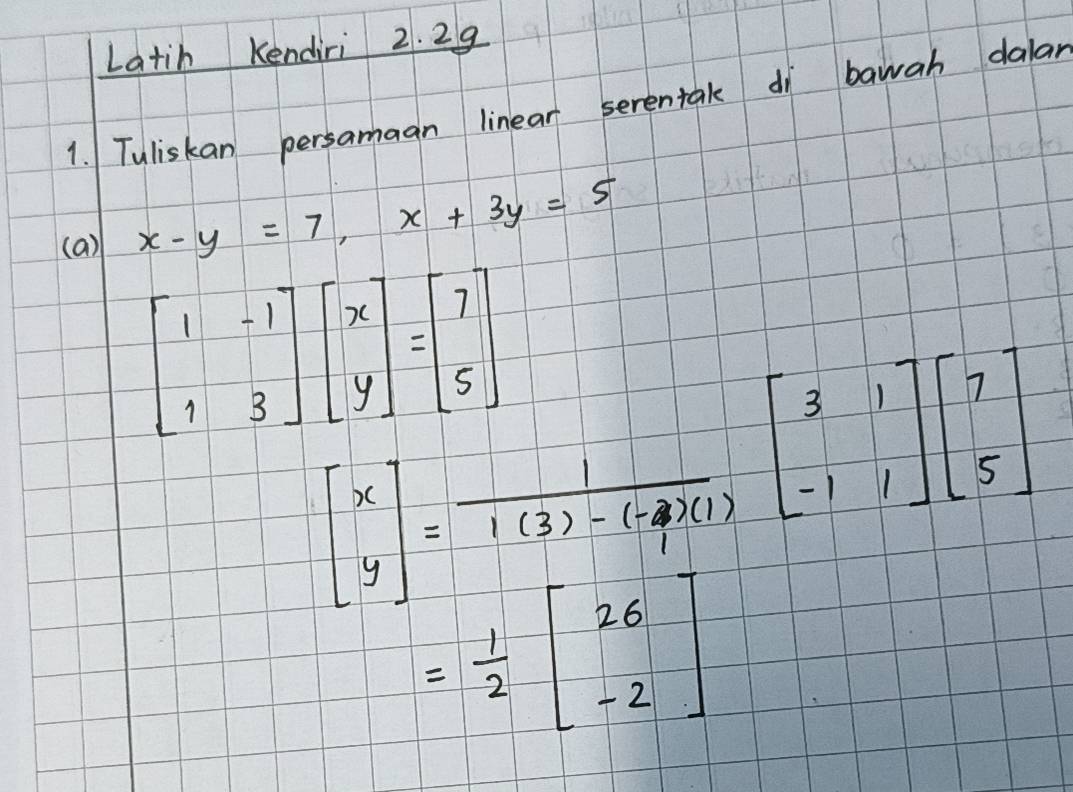 Latih Kendiri 2.2g
1. Tuliskan persamaan linear serentak di bawah dalam
(a) x - y = 7, x + 3y = 5
[1 -1; 1 3] [x; y] = [7; 5]
[x; y] = 1/(1(3) - (-1)(1)) [3 1; -1 1] [7; 5]
= 1/2 [26; -2]